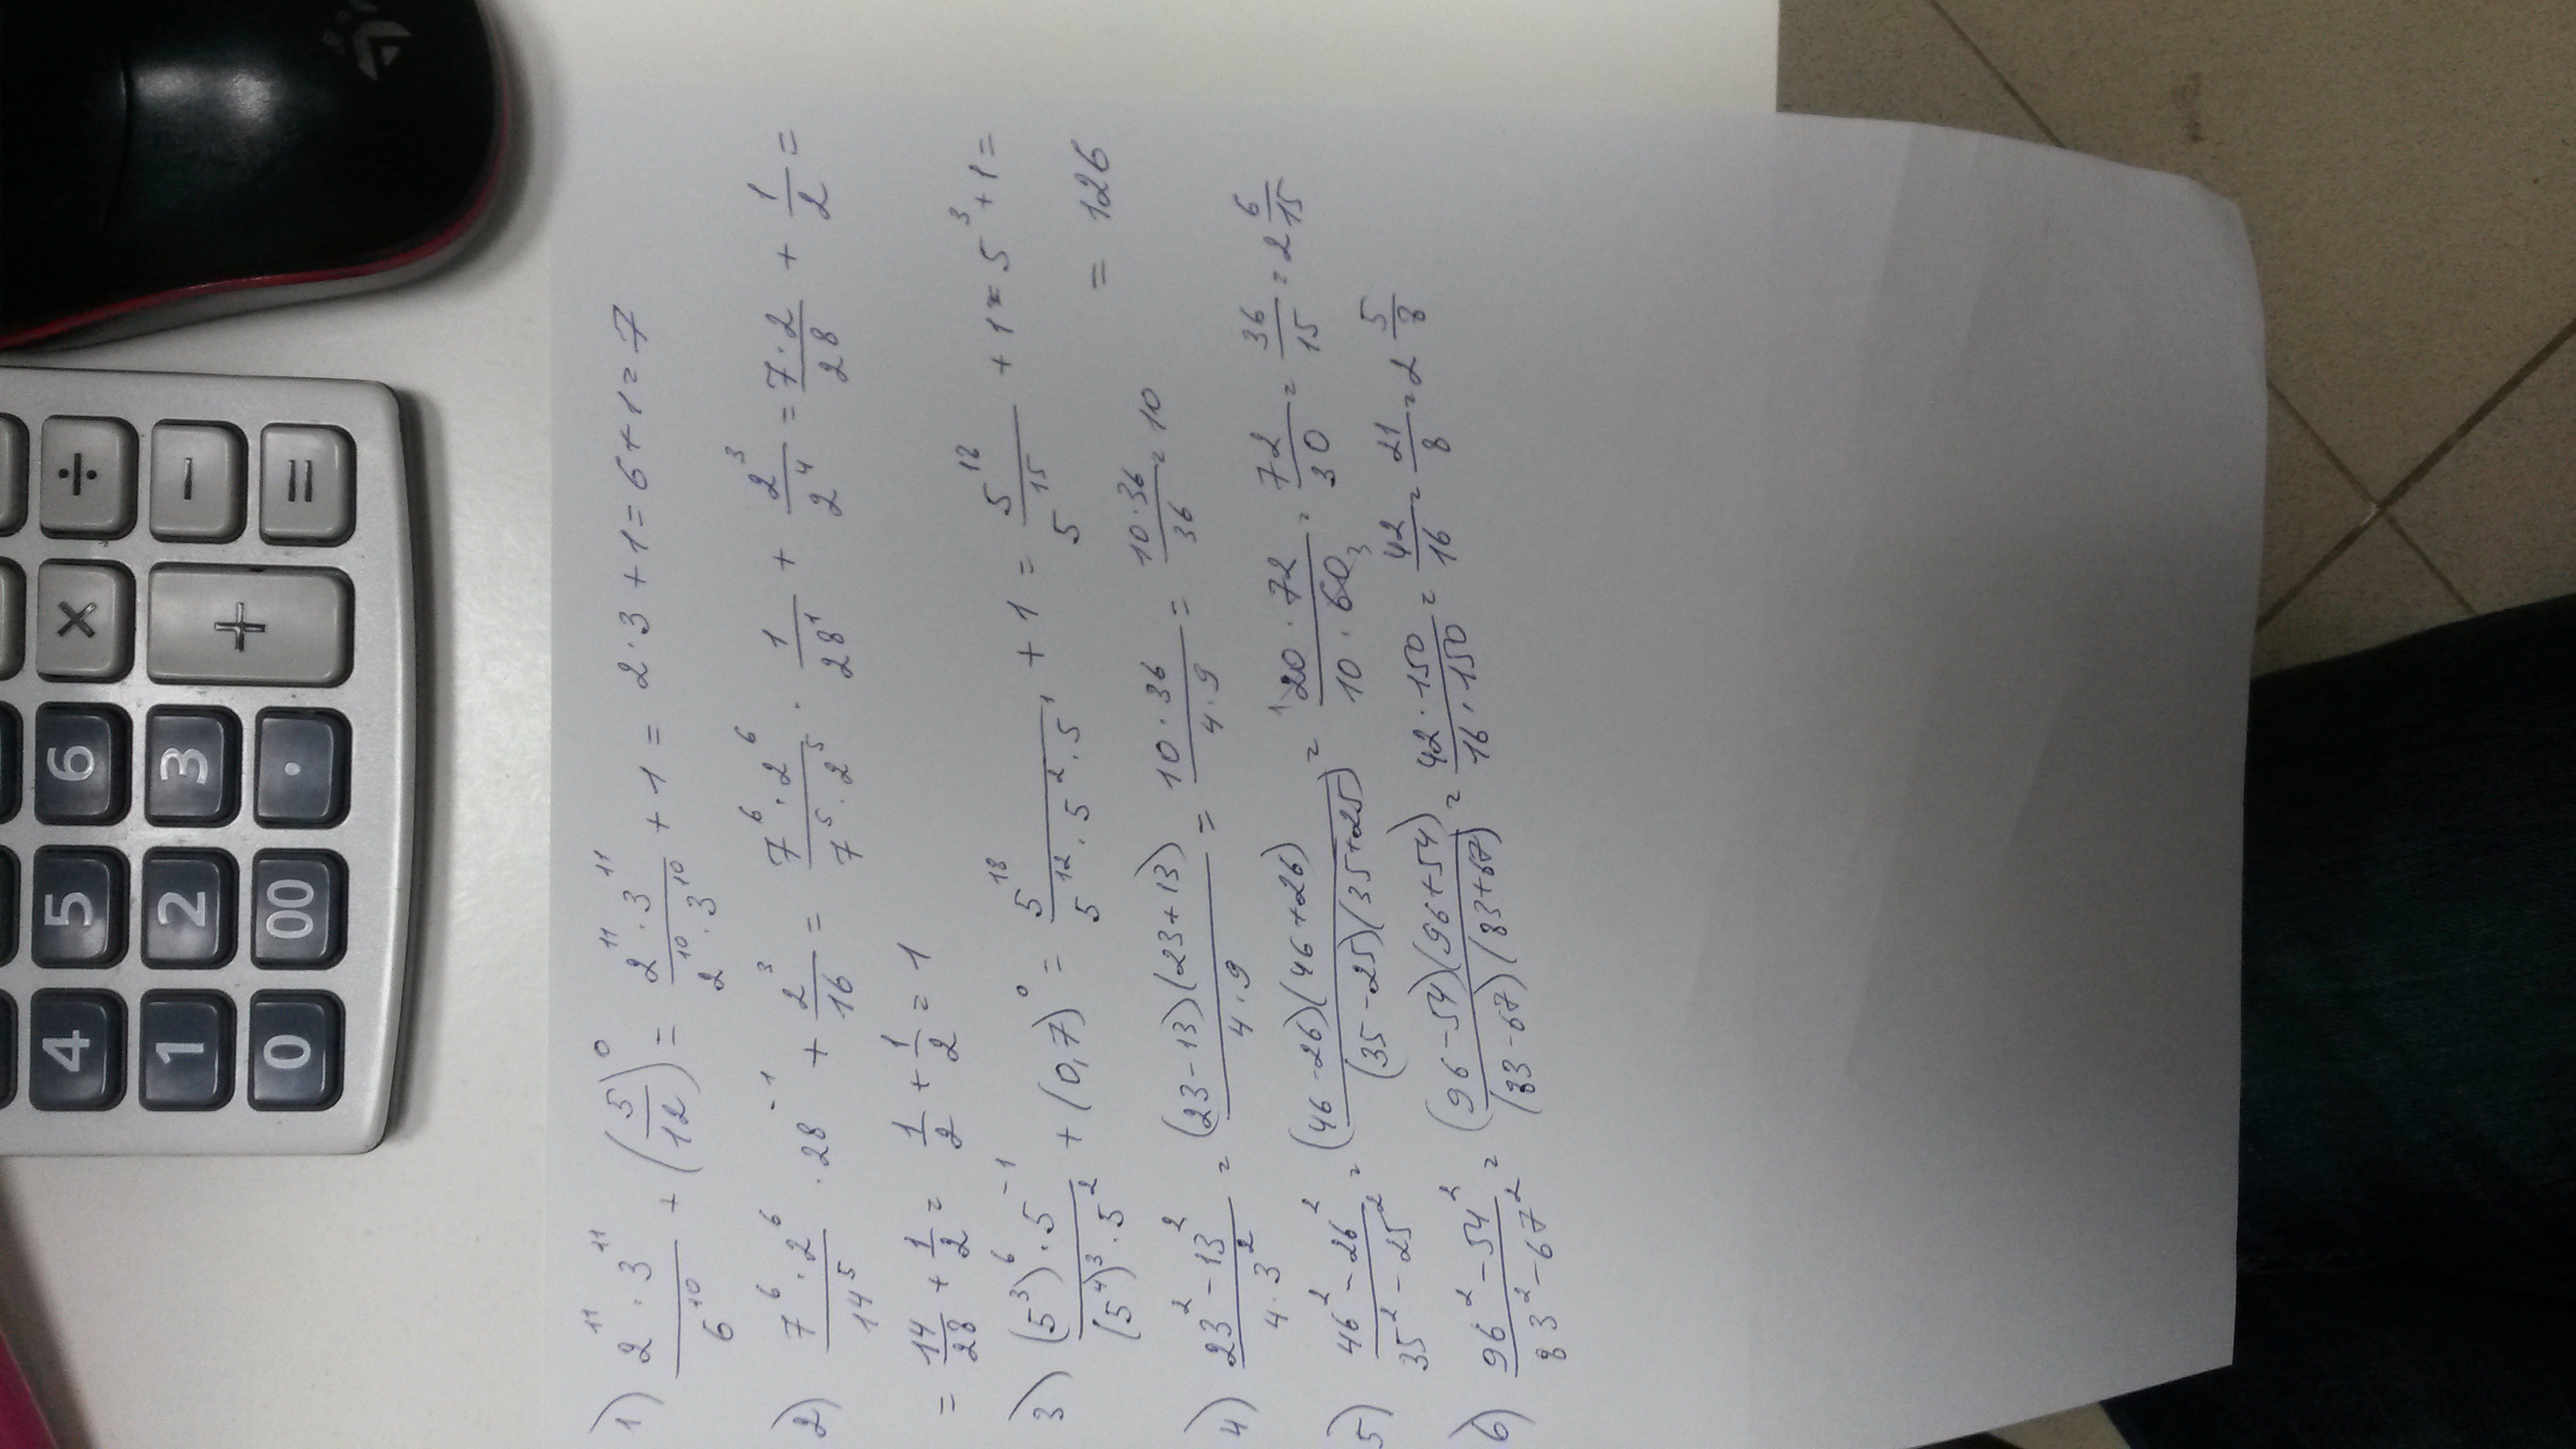 ÷ − =
× +
6 3 .
5 2 00
4 1 0
1) (2¹¹ · 3¹¹)/6¹⁰ + (5/12)⁰ = (2¹¹ · 3¹¹)/(2¹⁰ · 3¹⁰) + 1 = 2 · 3 + 1 = 6 + 1 = 7
2) (7⁶ · 2⁶)/14⁵ · 28⁻¹ + 2³/16 = (7⁶ · 2⁶)/(7⁵ · 2⁵) · 1/28¹ + 2³/2⁴ = (7 · 2)/28 + 1/2 =
= 14/28 + 1/2 = 1/2 + 1/2 = 1
3) ((5³)⁶ · 5⁻¹)/((5⁴)³ · 5²) + (0,7)⁰ = 5¹⁸/(5¹² · 5² · 5¹) + 1 = 5¹⁸/5¹⁵ + 1 = 5³ + 1 =
= 126
4) (23² − 13²)/(4 · 3²) = ((23 − 13)(23 + 13))/(4 · 9) = (10 · 36)/(4 · 9) = (10 · 36)/36 = 10
5) (46² − 26²)/(35² − 25²) = ((46 − 26)(46 + 26))/((35 − 25)(35 + 25)) = (¹20 · 72)/(10 · 60₃) = 72/30 = 36/15 = 2 6/15
6) (96² − 54²)/(83² − 67²) = ((96 − 54)(96 + 54))/((83 − 67)(83 + 67)) = (42 · 150)/(16 · 150) = 42/16 = 21/8 = 2 5/8